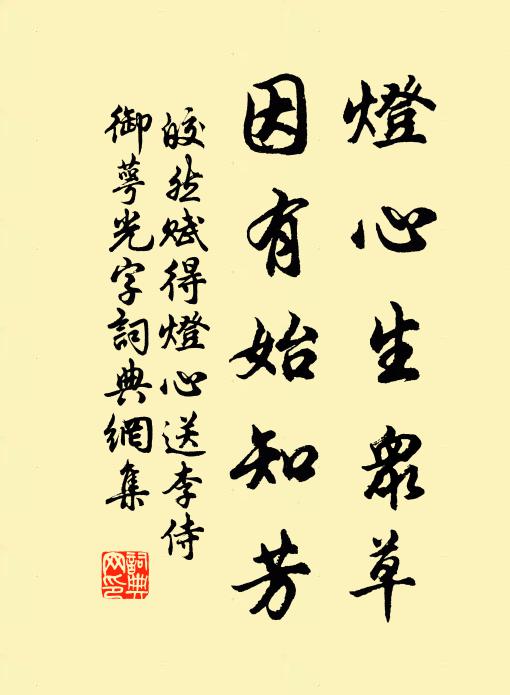 燈心生衆草
因有始知芳
皎然賦得燈心送李侍
御萼光字詞典網集
詞典网印